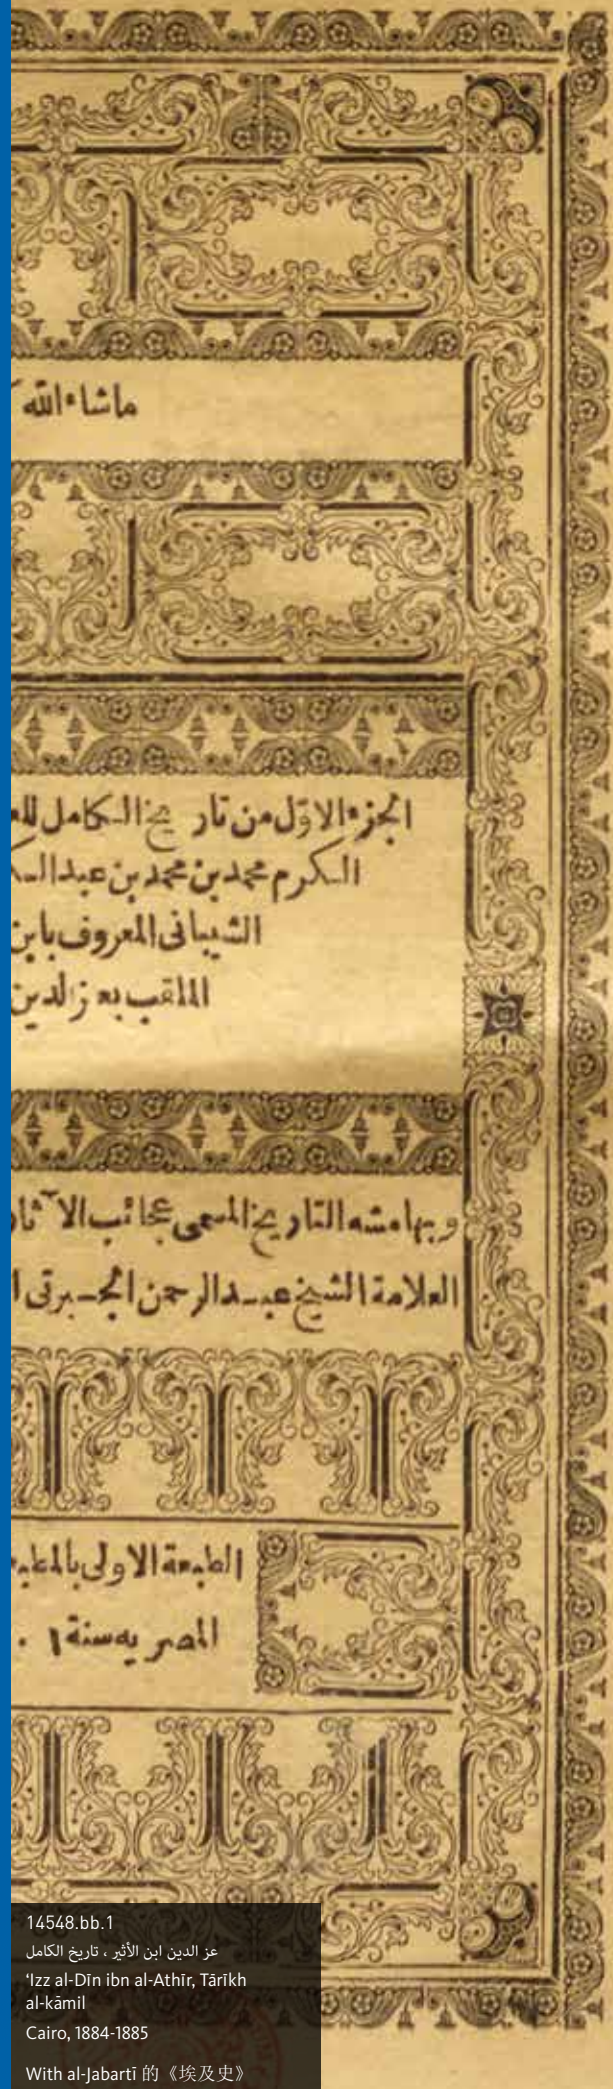 ماشاءالله
الجزء الاوّل من تاريخ الكامل للع
الكرم محمد بن محمد بن عبد الك
الشيبانى المعروف بابن
الملقب بعز الدين
وبهامشه التاريخ المسمى عجائب الآثار
العلامة الشيخ عبد الرحمن الجبرتى ا
الطبعة الاولى بالمطبعة
المصريه سنة ١
14548.bb.1
عز الدين ابن الأثير ، تاريخ الكامل
‘Izz al-Dīn ibn al-Athīr, Tārīkh
al-kāmil
Cairo, 1884-1885
With al-Jabartī 的《埃及史》